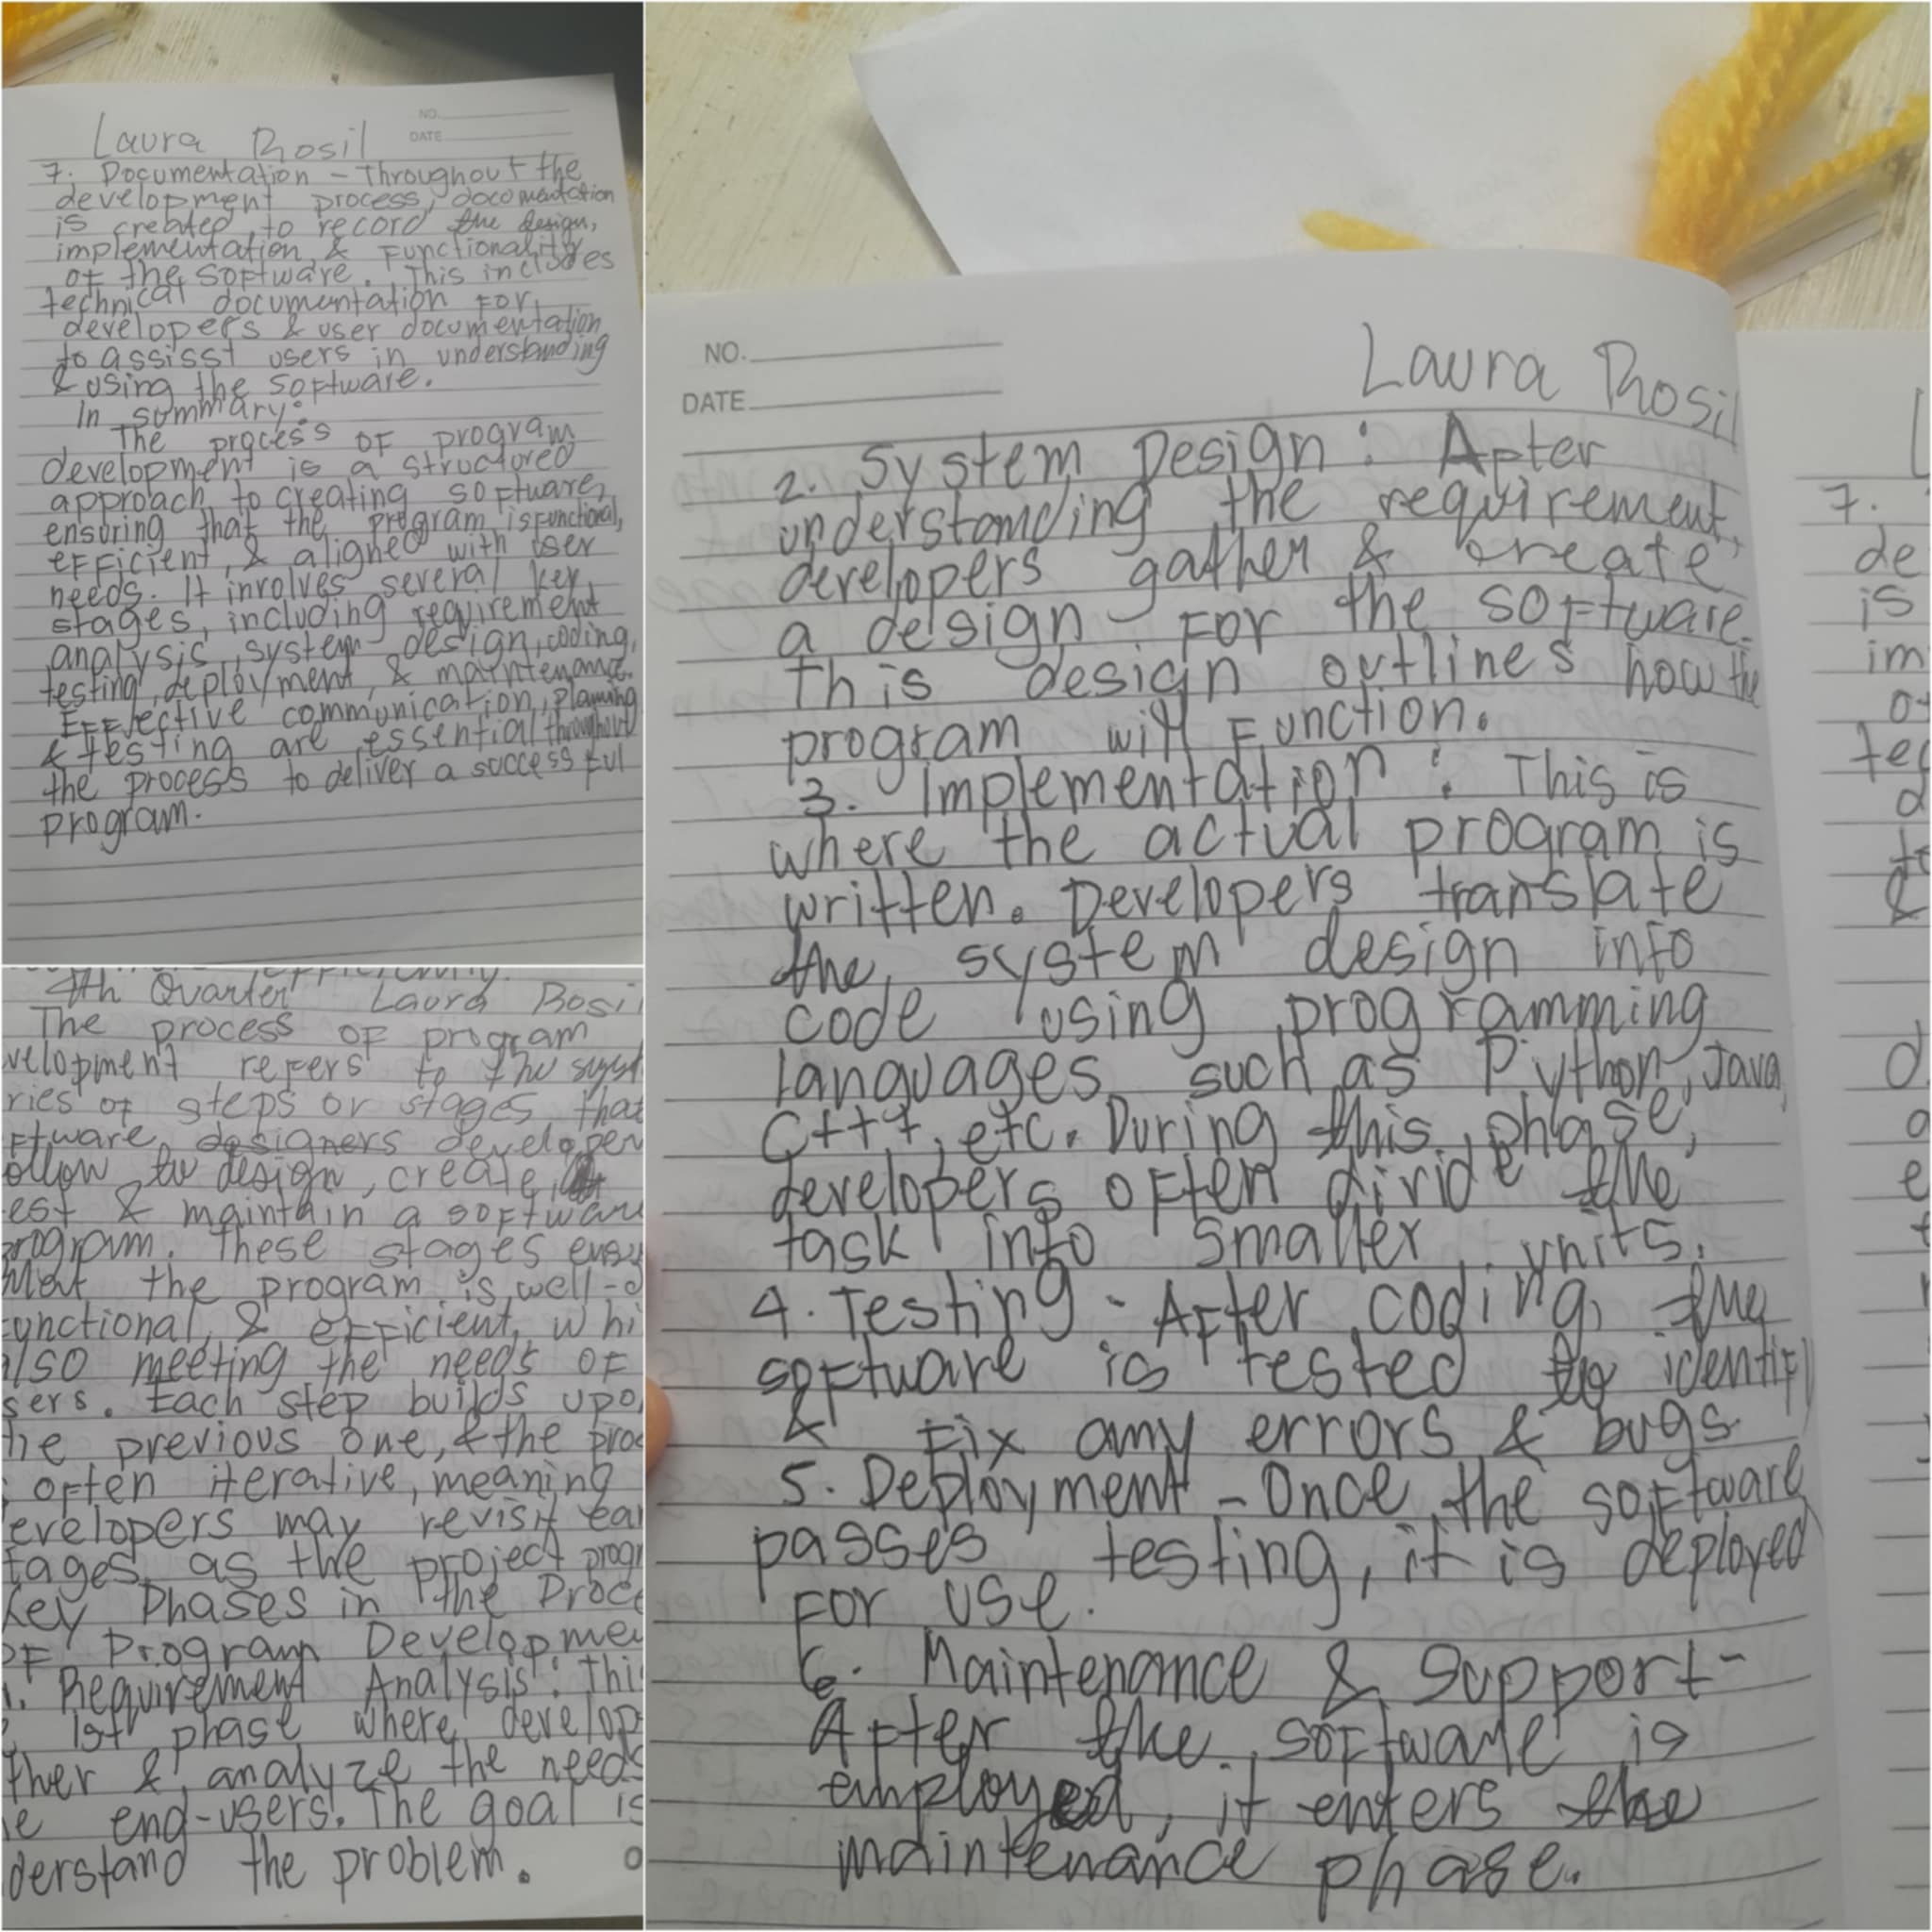 NO.
DATE
Laura Rosil
7. Documentation - Throughout the
development process, documentation
is created to record the design,
implementation, & Functionality
of the software. This includes
technical documentation For
developers & user documentation
to assisst users in understanding
& using the software.
In summary:
The process OF program
development is a structured
approach to creating software,
ensuring that the program is functional,
efficient, & aligned with user
needs. It involves several key
stages, including requirement
analysis, system design, coding,
testing, deployment, & maintenance.
Effective communication, planning
& testing are essential throughout
the process to deliver a successful
program.
4th Quarter Laura Rosi
The process OF program
velopment refers to the
ries of steps or stages that
ftware designers developer
ollow to design, create,
est & maintain a software
rogram. These stages ensu
that the program is well-
unctional, & efficient, whi
also meeting the needs OF
sers. Each step builds upo
he previous one, & the proc
often iterative, meaning
evelopers may revisit ear
tages as the project progr
Key Phases in the Proce
OF Program Developmen
1. Requirement Analysis: This
1st phase where develop
ther & analyze the needs
e end-users. The goal is
derstand the problem.
NO.
DATE
Laura Rosil
2. System Design: After
understanding the requirement,
developers gather & create
a design For the software.
This design outlines how the
program will Function.
3. Implementation: This is
where the actual program is
written. Developers translate
the system design into
code using programming
languages such as Python, Java,
C++, etc. During this phase,
developers often divide the
task into smaller units.
4. Testing - After coding, the
software is tested to identify
& Fix any errors & bugs
5. Deployment - Once the software
passes testing, it is deployed
For use.
6. Maintenance & Support -
After the software is
employed, it enters the
maintenance phase.
7.
de
is
im
o
tec
d
to
&
d
a
e